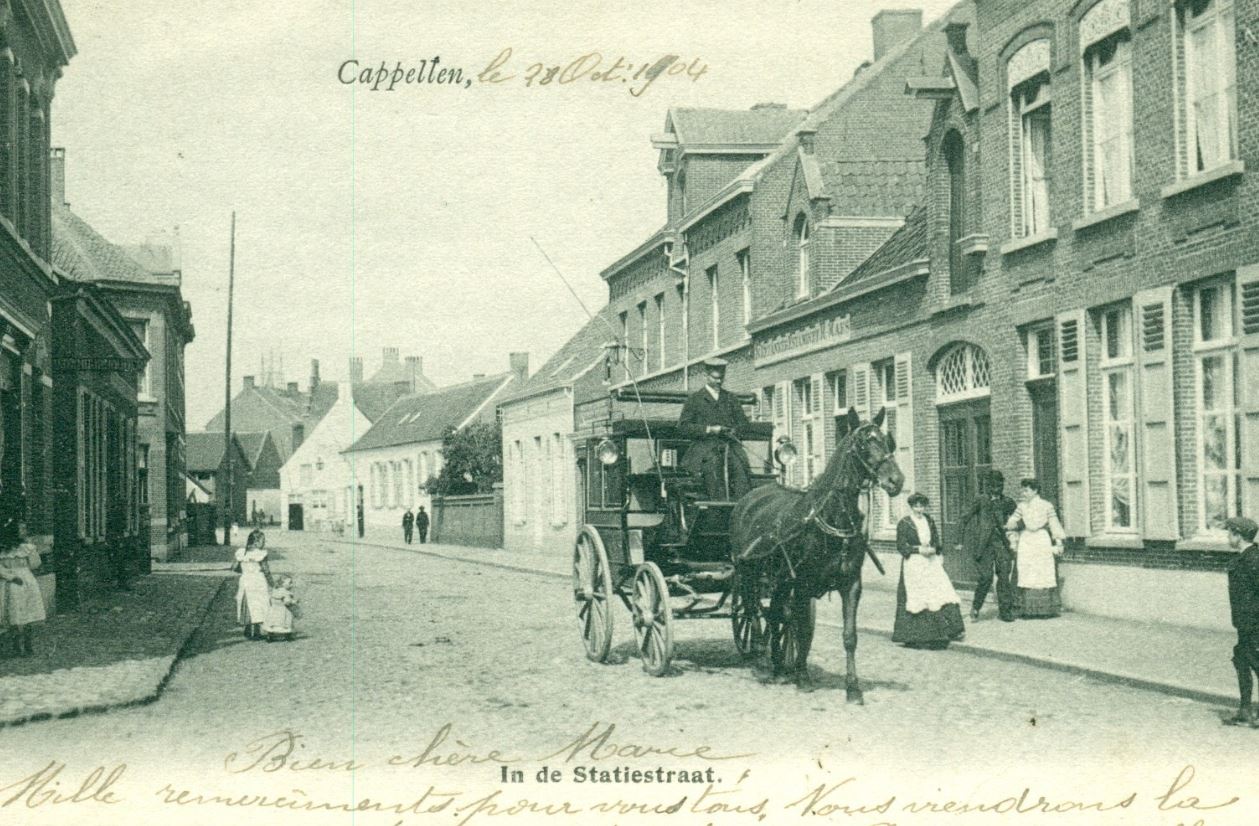 Cappellen, le 28 Oct. 1904
Bien chère Marie
In de Statiestraat.
Mille remerciments pour vous tous, Nous viendrons la